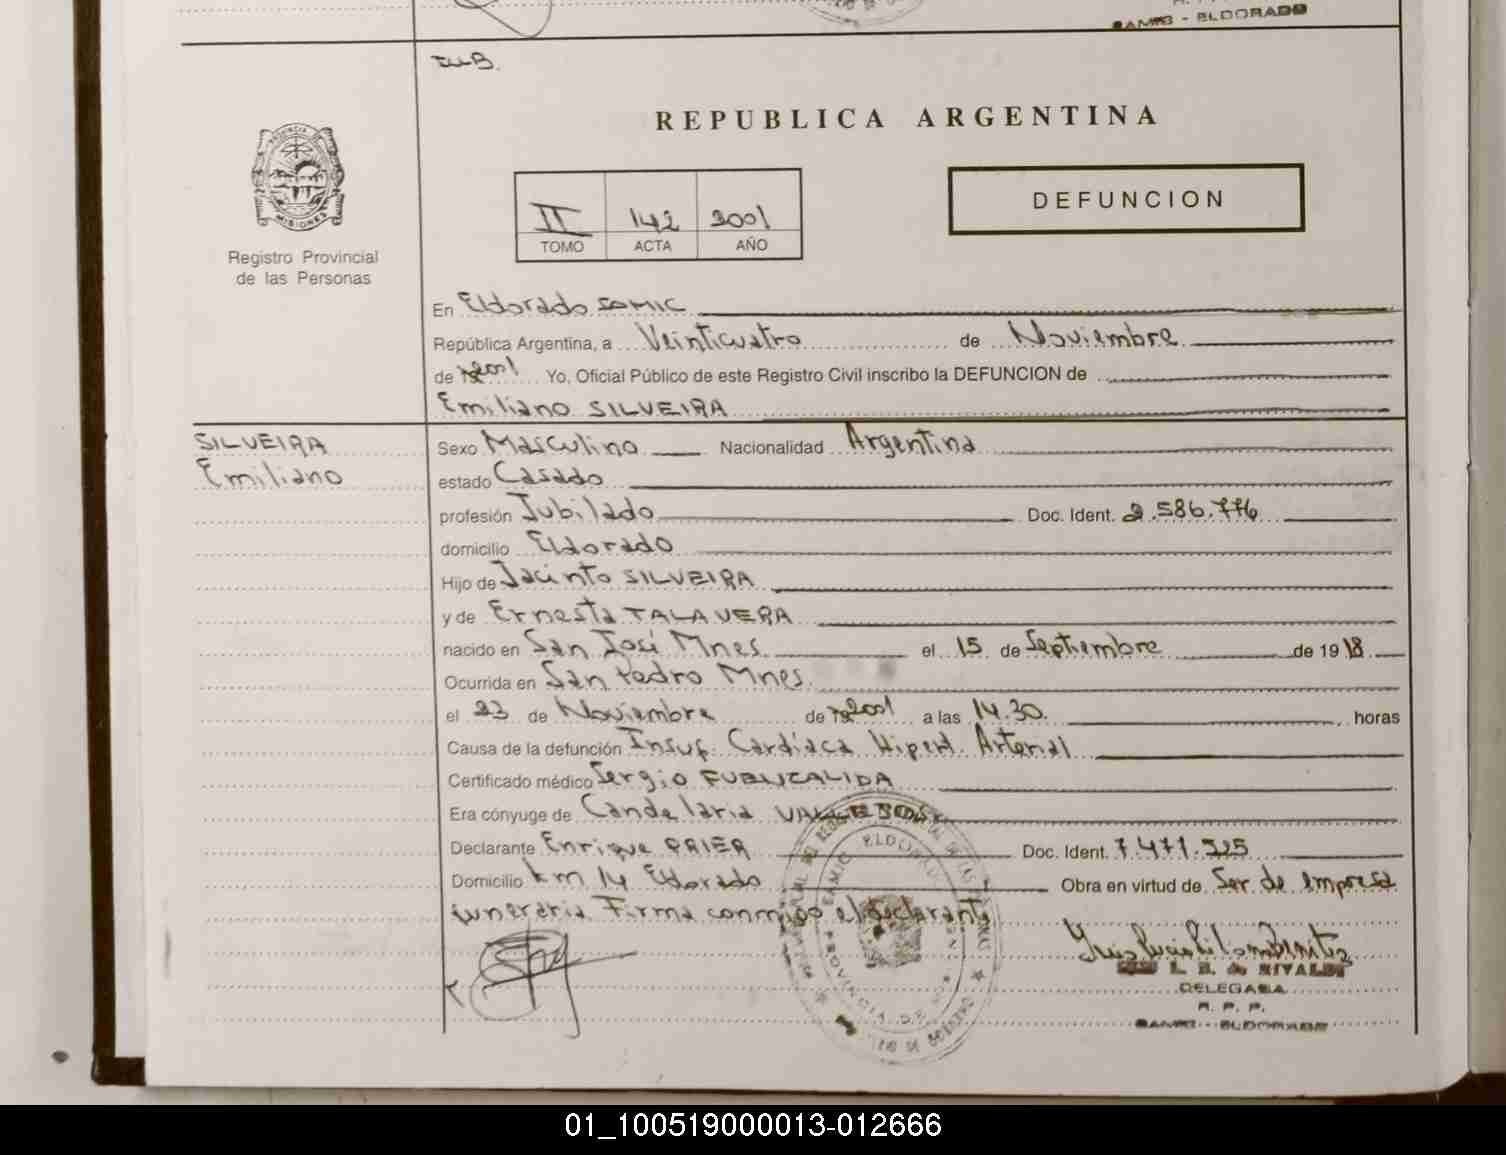 SAMIC - ELDORADO
REPUBLICA ARGENTINA
DEFUNCION
II 142 2001
TOMO ACTA AÑO
PROVINCIA DE
MISIONES
Registro Provincial
de las Personas
En Eldorado SAMIC
República Argentina, a Veinticuatro de Noviembre
de 2001 Yo, Oficial Público de este Registro Civil inscribo la DEFUNCION de
Emiliano SILVEIRA
SILVEIRA
Emiliano
Sexo Masculino Nacionalidad Argentina
estado Casado
profesión Jubilado Doc. Ident. 2.586.776
domicilio Eldorado
Hijo de Jacinto SILVEIRA
y de Ernesta TALAVERA
nacido en San José Mnes. el 15 de Septiembre de 1918
Ocurrida en San Pedro Mnes.
el 23 de Noviembre de 2001 a las 14.30 horas
Causa de la defunción Insuf. Cardíaca Hipert. Arterial
Certificado médico Sergio
Era cónyuge de Candelaria VALLEJOS
Declarante Enrique PRIER Doc. Ident. 7.471.525
Domicilio km 14 Eldorado Obra en virtud de Ser de empresa
funeraria Firma conmigo el declarante
L. B. de RIVALDI
DELEGADA
R. P. P.
SAMIC - ELDORADO
01_100519000013-012666